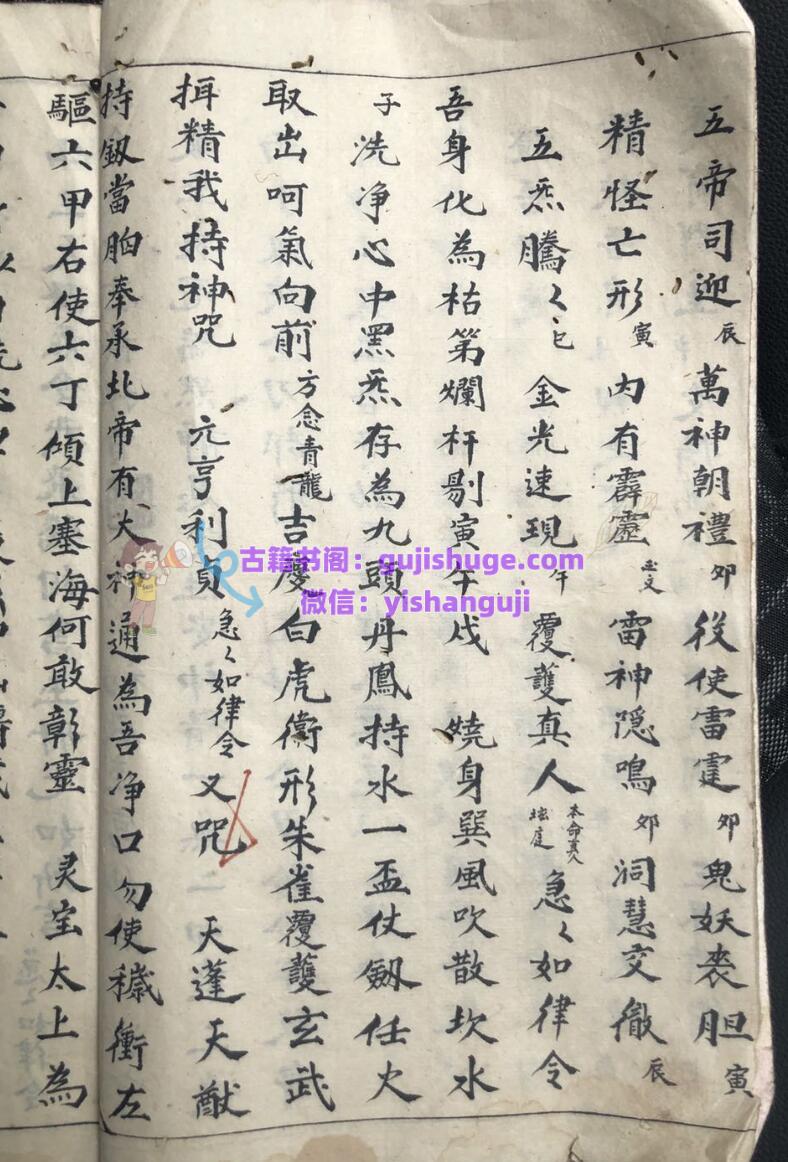 五帝司迎辰 萬神朝禮卯 役使雷霆卯 鬼妖喪胆寅
精怪亡形寅 内有霹靂 雷神隠鳴卯 洞慧交徹辰
五炁騰々巳 金光速現午 覆護真人本命真人 急々如律令
吾身化為枯 爛 寅午戍 燒身巽風吹散坎水
子 洗净心中黑炁存為九頭丹鳳持水一盃仗劔任火
取出呵氣向前方念青龍吉慶白虎衛形朱雀覆護玄武
揖精我持神咒 元亨利貞急々如律令 又咒 天蓬天猷
持釼當胷奉承北帝有大神通為吾净口勿使穢衝左
驅六甲右使六丁傾上塞海何敢彰靈 灵宝太上為
古籍书阁：gujishuge.com
微信：yishanguji